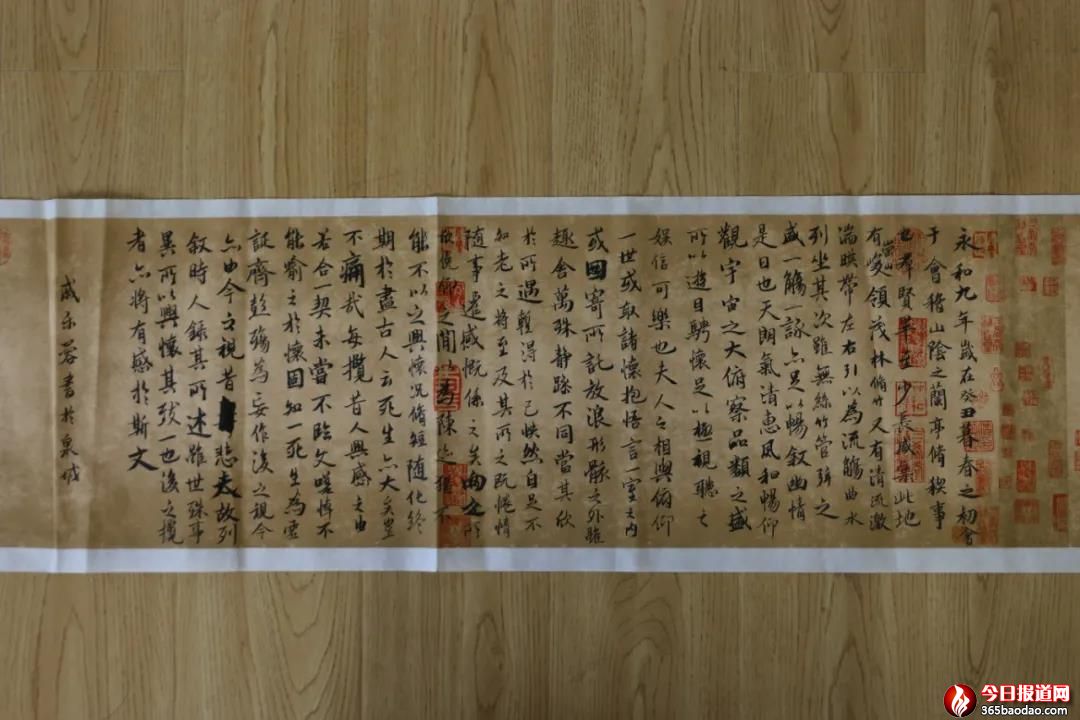 永和九年歲在癸丑暮春之初會
于會稽山陰之蘭亭脩稧事
也羣賢畢至少長咸集此地
有崇山峻領茂林脩竹又有清流激
湍暎帶左右引以為流觴曲水
列坐其次雖無絲竹管弦之
盛一觴一詠亦足以暢叙幽情
是日也天朗氣清惠風和暢仰
觀宇宙之大俯察品類之盛
所以遊目騁懷足以極視聽之
娛信可樂也夫人之相與俯仰
一世或取諸懷抱悟言一室之內
或因寄所託放浪形骸之外雖
趣舍萬殊静躁不同當其欣
於所遇暫得於己怏然自足不
知老之將至及其所之既惓情
隨事遷感慨係之矣向之所
欣俛仰之間以為陳迹猶不
能不以之興懷況脩短隨化終
期於盡古人云死生亦大矣豈
不痛哉每攬昔人興感之由
若合一契未嘗不臨文嗟悼不
能喻之於懷固知一死生為虛
誕齊彭殤為妄作後之視今
亦由今之視昔悲夫故列
叙時人錄其所述雖世殊事
異所以興懷其致一也後之攬
者亦將有感於斯文
戚乐蓉書於泉城
今日报道网
365baodao.com